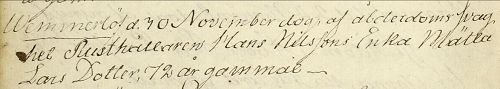 Wemmerlöf d. 30 November dog, af ålderdoms svag
het Rusthållaren Hans Nilssons Enka Mätta
Lars Dotter, 72 år gammal —